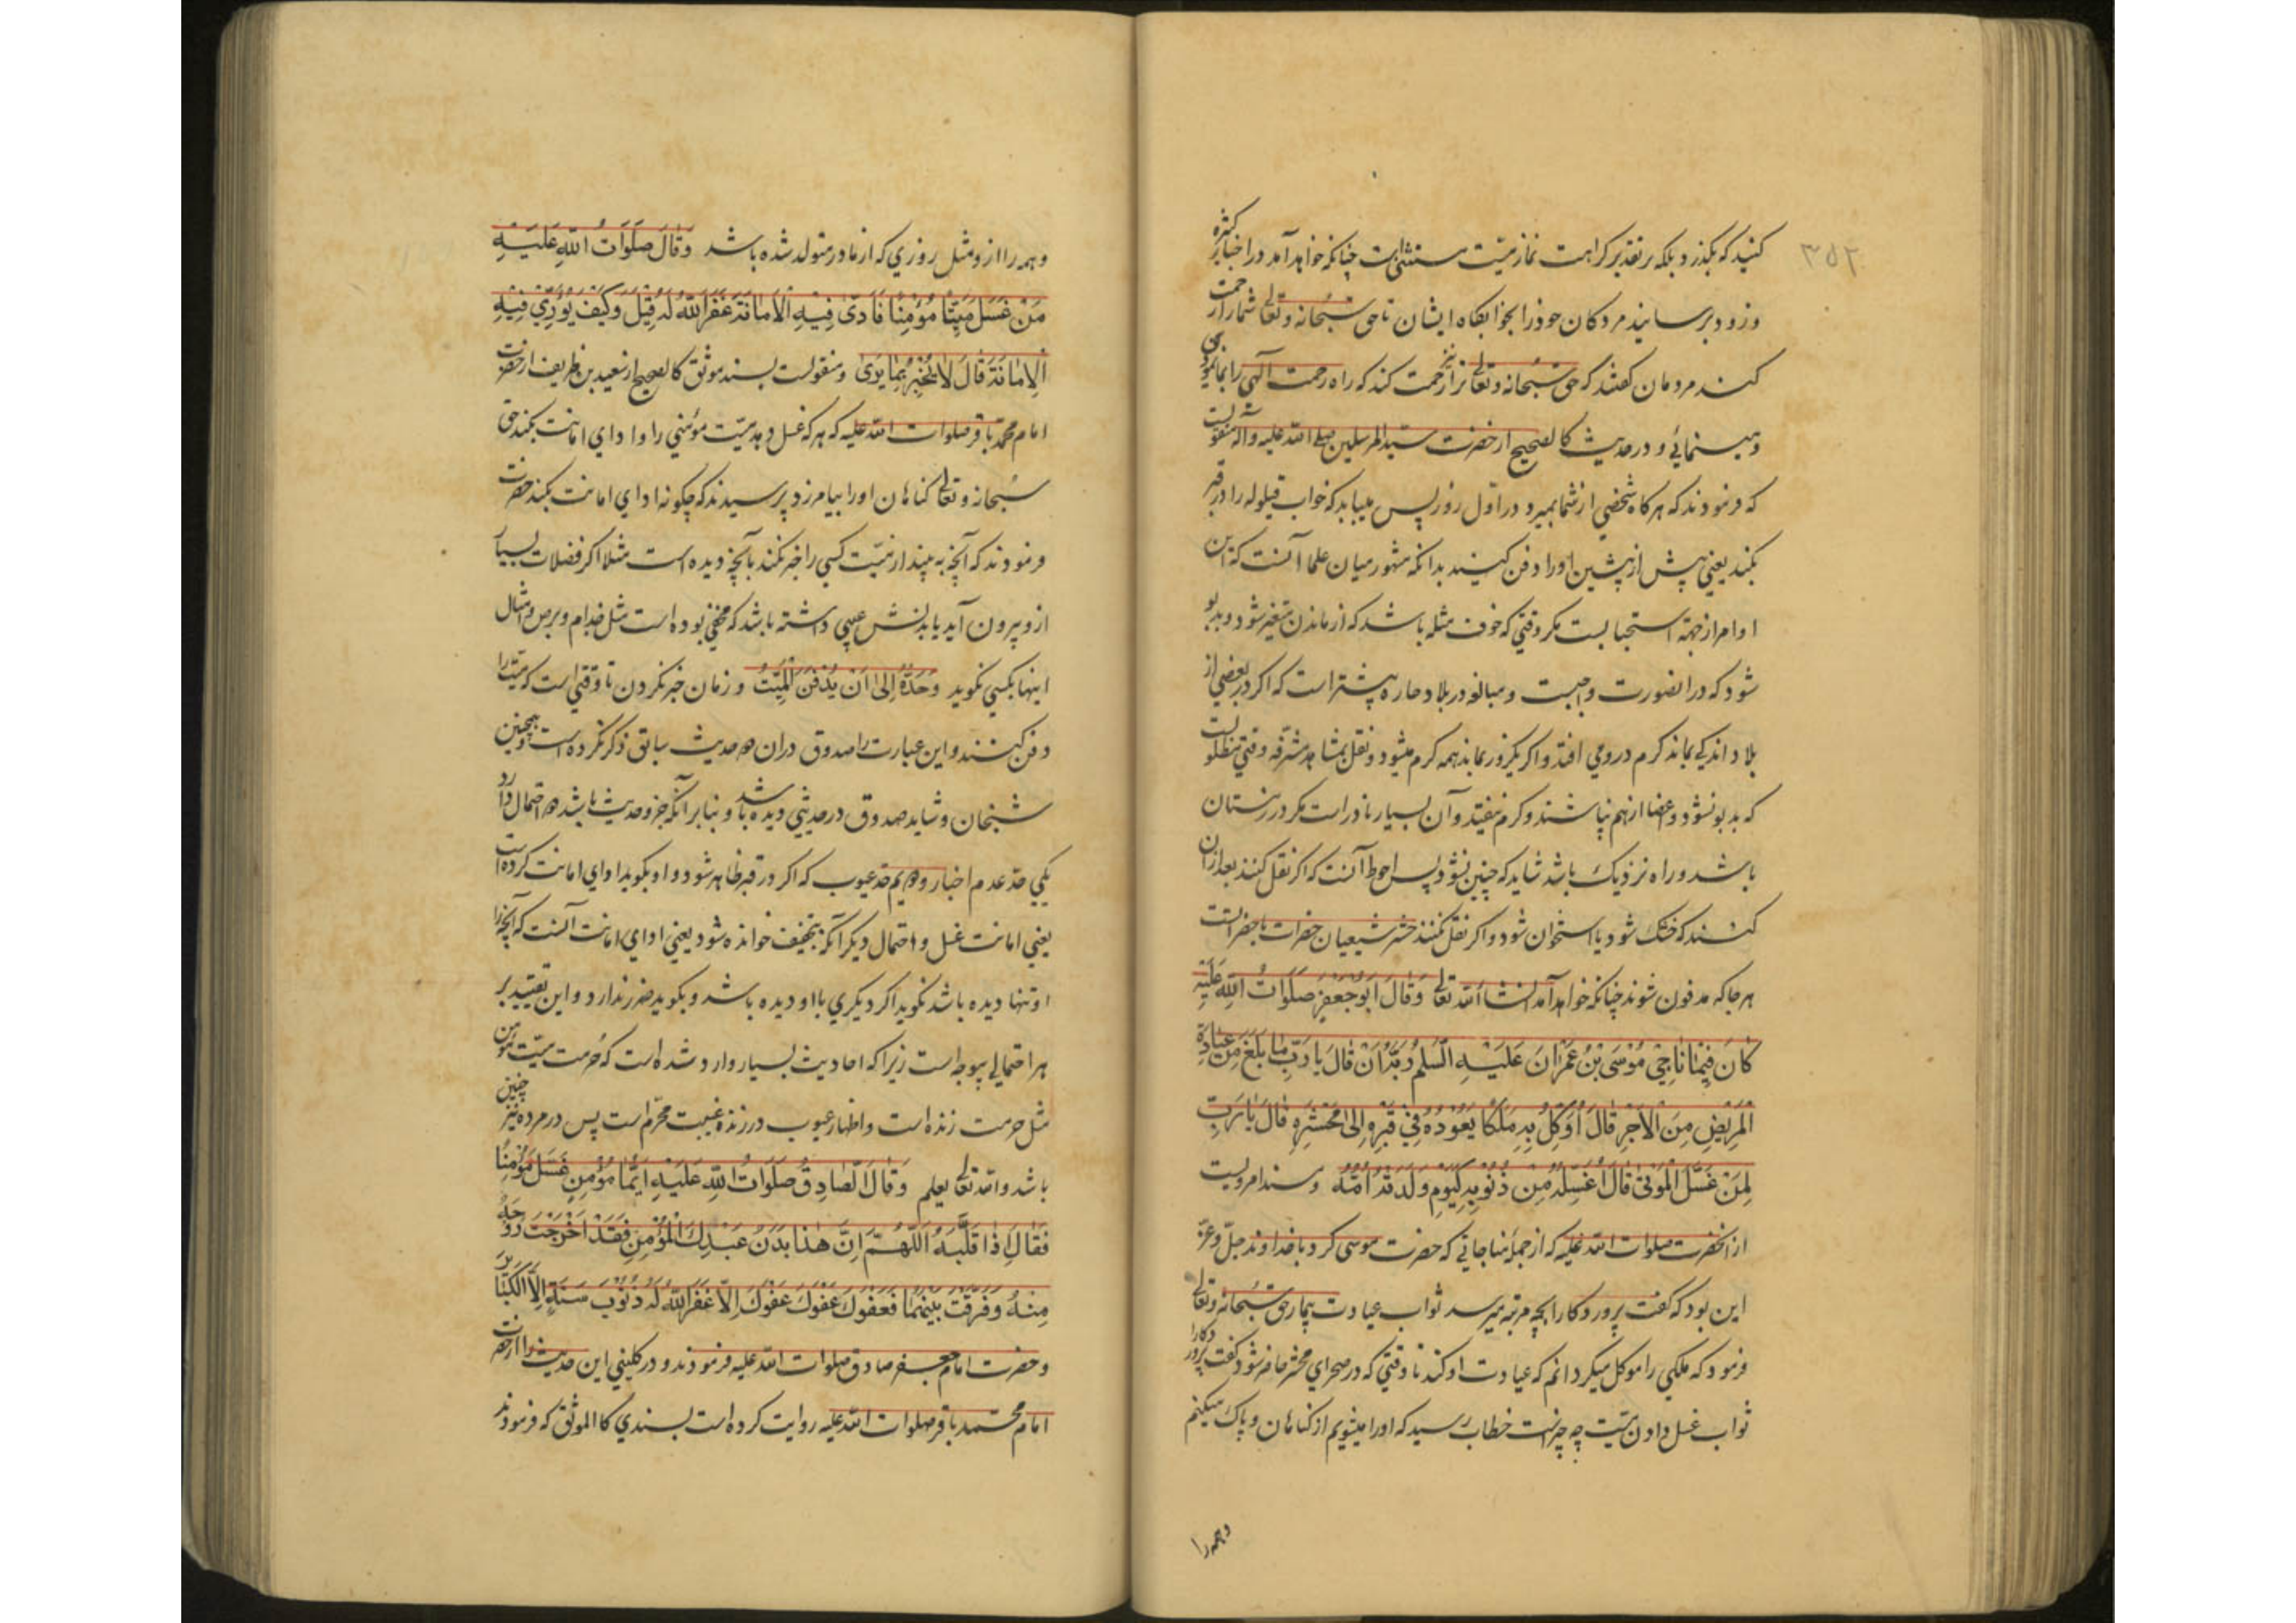 ۳۵۲
کنید که بگذرد بلکه بر تقدیر کراهت نماز میّت مستثنی است چنانکه خواهد آمد در اخبار کثیره
و زود برسانید مردکان خود را بخوابگاه ایشان تا حق سبحانه و تعالی شما را رحمت
کند مردمان گفتند که حق سبحانه و تعالی ترا نیز رحمت کند که راه رحمت الهی را بما می
نمائی و در حدیث کالصحیح از حضرت سید المرسلین صلی الله علیه وآله منقولست
که فرمودند که هرکاه شخصی از شما بمیرد در اوّل روز پس میباید که خواب قیلوله را در قبر
بکند یعنی پیش از پیشین او را دفن کنید بدانکه مشهور میان علما آنست که این
اوامر از جهة استحبابست مکر وقتی که خوف مثله باشد که از ماندن متغیر شود و بدبو
شود که در انصورت واجبست و مبالغه در بلاد حاره بیشتر است که اکر در بعضی از
بلاد اندکی بماند کرم در وی افتد و اکر یکروز بماند همه کرم میشود و نقل بمشاهد مشرفه وقتی مطلوبست
که بدبو نشود و اعضا از هم نپاشند و کرم نیفتد و آن بسیار نادر است مکر در زمستان
باشد و راه نزدیک باشد شاید که چنین نشود پس احوط آنست که اکر نقل کنند بعد از آن
کنند که خشک شود یا استخوان شود و اکر نقل نکنند حشر شیعیان حضرات با حضراتست
هر جا که مدفون شوند چنانکه خواهد آمد انشاء الله تعالی وَقَالَ اَبُوجَعْفَرٍ صَلَوَاتُ اللهِ عَلَیْهِ
کَانَ فِیمَا نَاجیٰ مُوسَی بْنُ عِمْرَانَ عَلَیْهِ السَّلٰمُ رَبَّهُ اَنْ قَالَ یَا رَبِّ مَا بَلَغَ مِنْ عِیَادَةِ
الْمَرِیْضِ مِنَ الْاَجْرِ قَالَ اُوَکِّلُ بِهِ مَلَکًا یَعُوْدُهُ فِیْ قَبْرِهِ اِلیٰ مَحْشَرِهِ قَالَ یَا رَبِّ
لِمَنْ غَسَّلَ الْمَوْتیٰ قَالَ اَغْسِلُهُ مِنْ ذُنُوْبِهِ کَیَوْمِ وَلَدَتْهُ اُمُّهُ و مسندا مرویست
از انحضرت صلوات الله علیه که از جملهٔ مناجاتی که حضرت موسی کرد با خداوند جلّ و عزّ
این بود که گفت پروردکارا بچه مرتبه میرسد ثواب عیادت بیمار حق سبحانه و تعالی
فرمود که ملکی را موکل میکردانم که عیادت او کند تا وقتی که در صحرای محشر حاضر شود گفت پروردکارا
ثواب غسل دادن میّت چه چیز است خطاب رسید که او را میشویم از کناهان و پاک میکنم
وهمه را
وهمه را از و مثل روزی که از مادر متولد شده باشد وَقَالَ صَلَوَاتُ اللهِ عَلَیْهِ
مَنْ غَسَّلَ مَیِّتًا مُؤْمِنًا فَاَدّیٰ فِیْهِ الْاَمَانَةَ غَفَرَ اللهُ لَهُ قِیْلَ وَکَیْفَ یُؤَدِّیْ فِیْهِ
الْاَمَانَةَ قَالَ لَا یُخْبِرُ بِمَا یَرَیٰ و منقولست بسند موثق کالصحیح از سعید بن ظریف از حضرت
امام محمد باقر صلوات الله علیه که هر که غسل دهد میّت مؤمنی را و ادای امانت بکند حق
سبحانه و تعالی کناهان او را بیامرزد پرسیدند که چکونه ادای امانت بکند حضرت
فرمودند که آنچه به بیند از میّت کسی را خبر نکند بآنچه دیده است مثلا اکر فضلات بسیار
از و بیرون آید یا بدنش عیبی داشته باشد که مخفی بوده است مثل جذام و برص و امثال
اینها بکسی نکوید وَحَدُّهُ اِلیٰ اَنْ یُدْفَنَ الْمَیِّتُ و زمان خبر نکردن تا وقتی است که میّت را
دفن کنند و این عبارت را صدوق در ان دو حدیث سابق ذکر نکرده است و همچنین
شیخان و شاید صدوق در حدیثی دیده باشد و بنابر انکه جزو حدیث باشد دو احتمال دارد
یکی حدّ عدم اخبار و دویم حد عیوب که اکر در قبر ظاهر شود و او بکوید ادای امانت کرده است
یعنی امانت غسل و احتمال دیکر آنکه بتخفیف خوانده شود یعنی ادای امانت آنست که آنچه را
او تنها دیده باشد نکوید اکر دیکری با او دیده باشد و بکوید ضرر ندارد و این تقیید بر
هر احتمالی بیوجه است زیرا که احادیث بسیار وارد شده است که حُرمت میّت مؤمن
مثل حرمت زنده است و اظهار عیوب در زنده غیبت محرّم است پس در مرده نیز چنین
باشد والله تعالی یعلم وَقَالَ الصَّادِقُ صَلَوَاتُ اللهِ عَلَیْهِ اَیُّمَا مُؤْمِنٍ غَسَّلَ مُؤْمِنًا
فَقَالَ اِذَا قَلَّبَهُ اَللّٰهُمَّ اِنَّ هٰذَا بَدَنُ عَبْدِکَ الْمُؤْمِنِ فَقَدْ اَخْرَجْتَ رُوْحَهُ
مِنْهُ وَفَرَّقْتَ بَیْنَهُمَا فَعَفْوَکَ عَفْوَکَ عَفْوَکَ اِلَّا غَفَرَ اللهُ لَهُ ذُنُوْبَ سَنَةٍ اِلَّا الْکَبَائِرَ
و حضرت امام جعفر صادق صلوات الله علیه فرمودند و در کلینی این حدیث را از حضرت
امام محمد باقر صلوات الله علیه روایت کرده است بسندی کالموثق که فرمودند